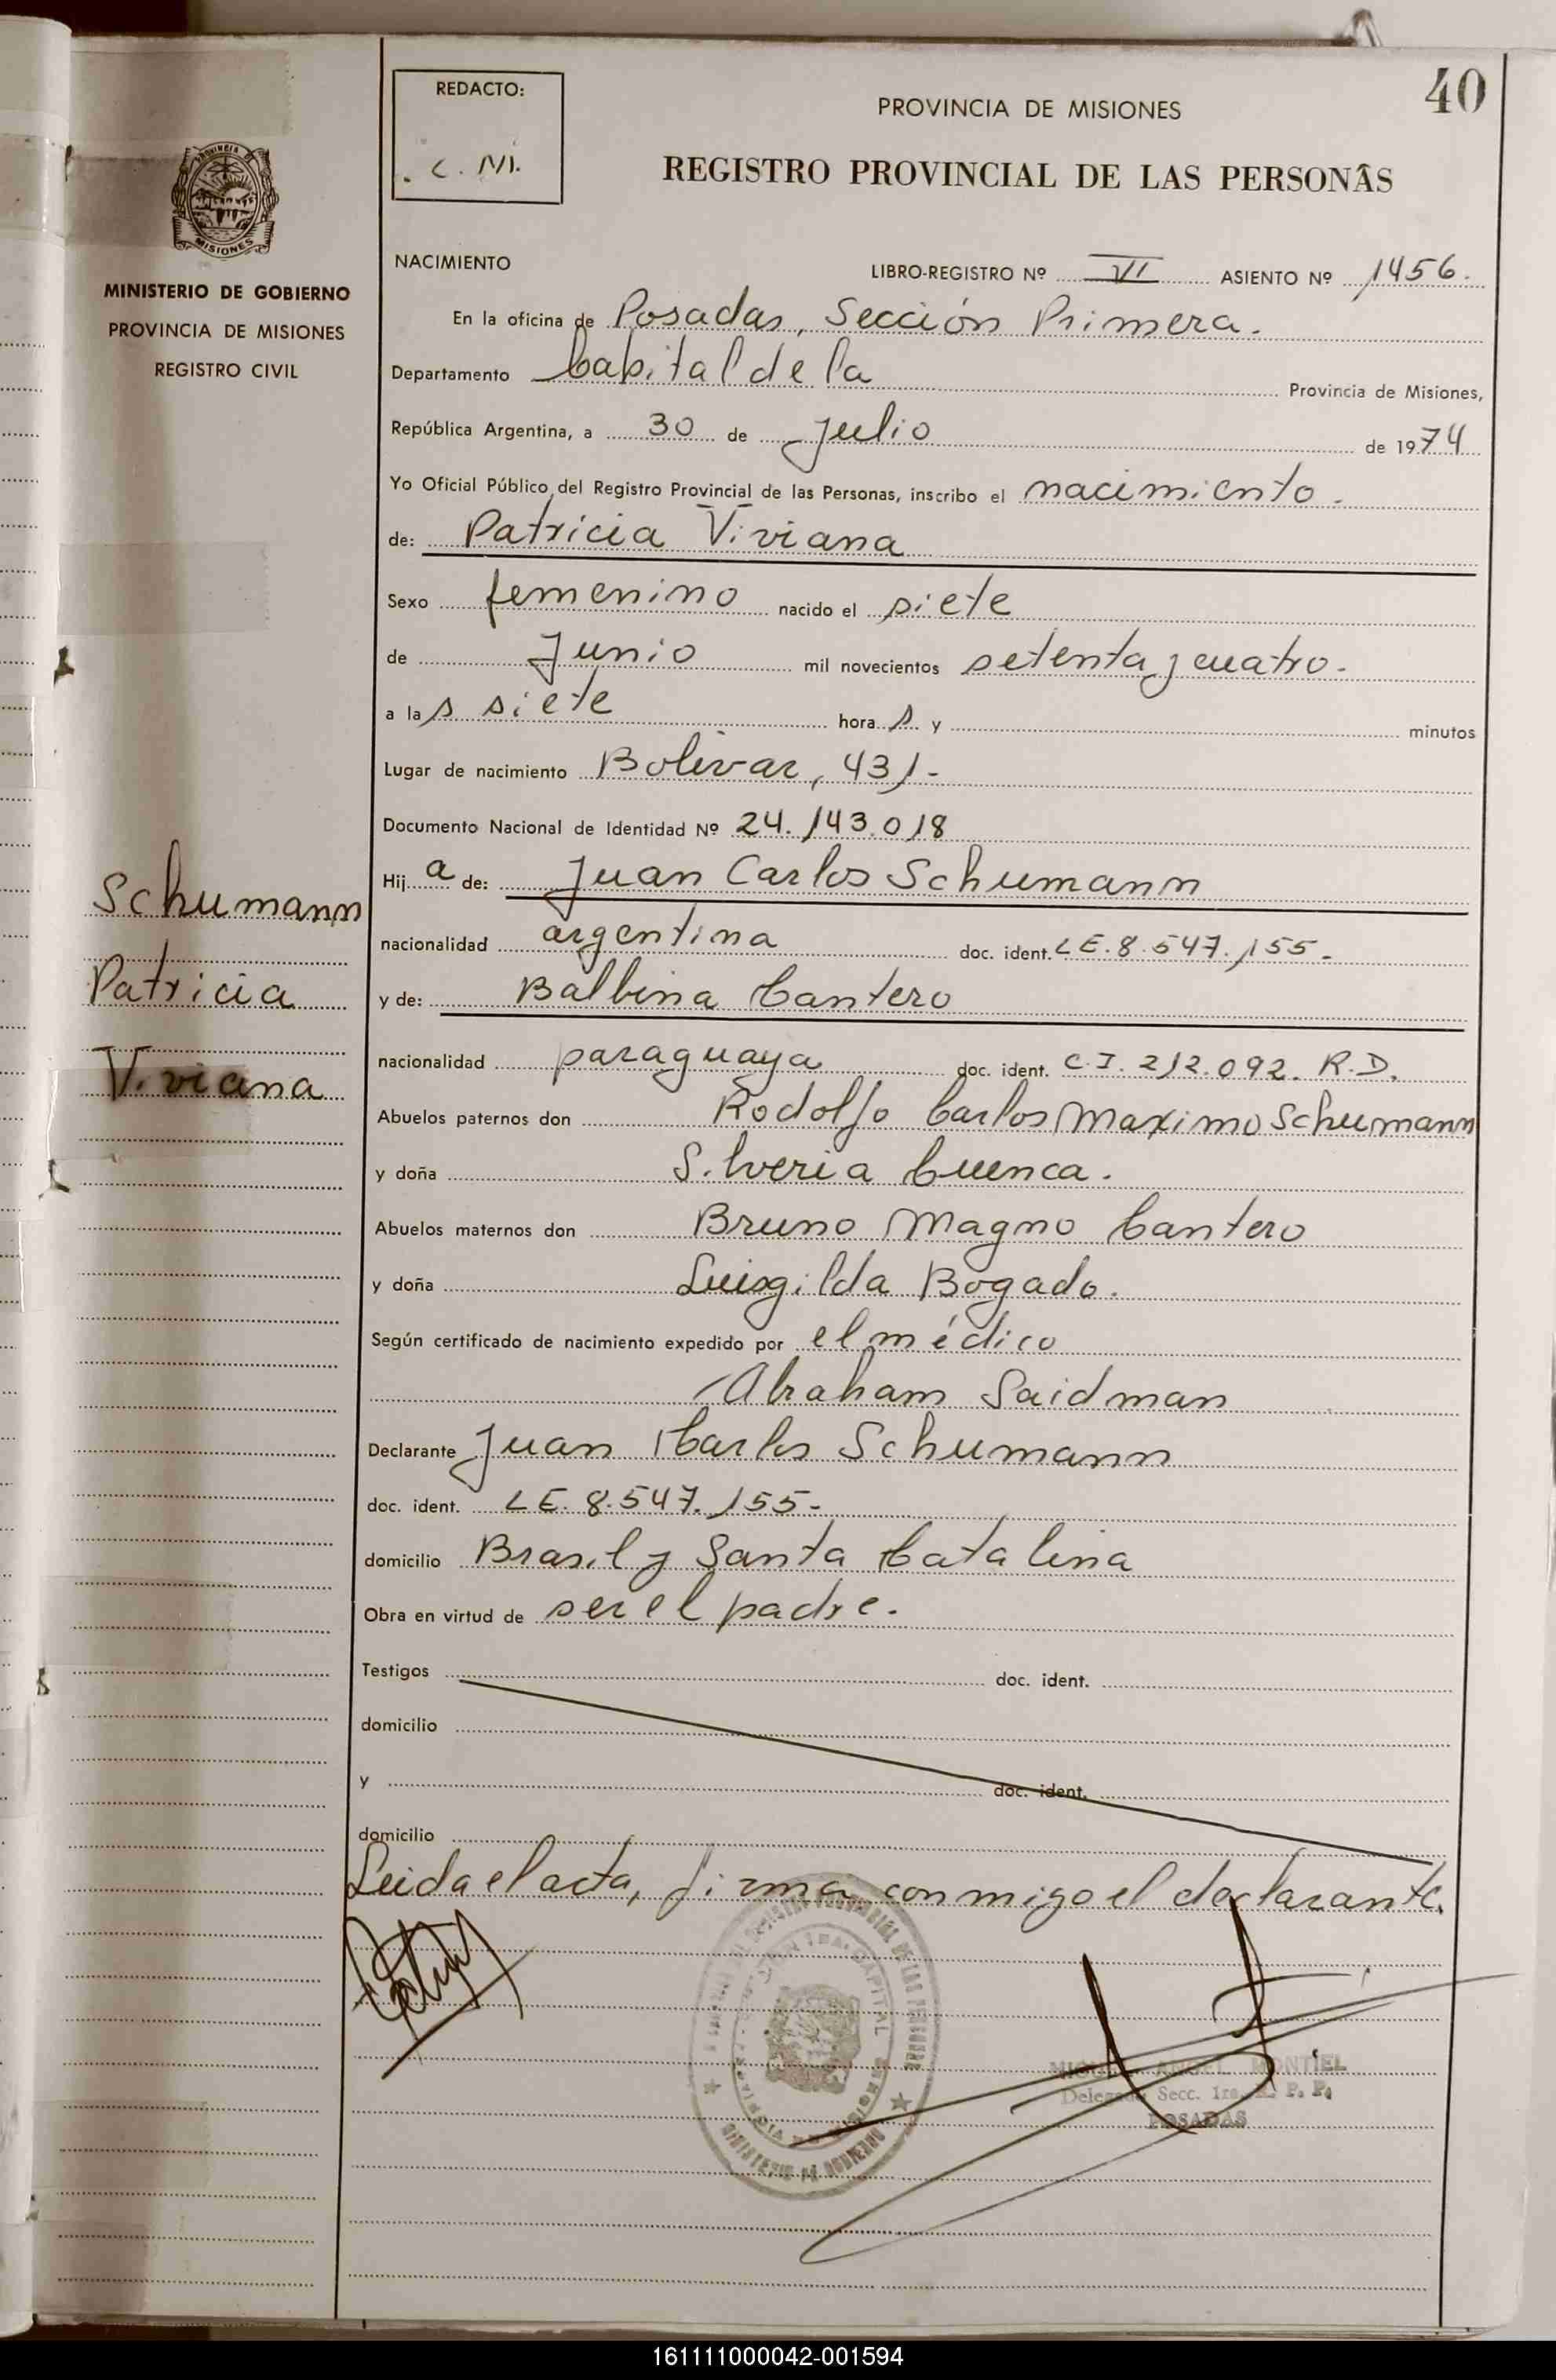 40
REDACTO:
C. M.
PROVINCIA DE MISIONES
REGISTRO PROVINCIAL DE LAS PERSONAS
PROVINCIA DE
MISIONES
MINISTERIO DE GOBIERNO
PROVINCIA DE MISIONES
REGISTRO CIVIL
NACIMIENTO LIBRO-REGISTRO Nº VI ASIENTO Nº 1456.
En la oficina de Posadas, Sección Primera.
Departamento Capital de la Provincia de Misiones,
República Argentina, a 30 de Julio de 1974
Yo Oficial Público del Registro Provincial de las Personas, inscribo el nacimiento.
de: Patricia Viviana
Sexo femenino nacido el siete
de Junio mil novecientos setenta y cuatro.
a las siete horas y minutos
Lugar de nacimiento Bolivar, 431-
Documento Nacional de Identidad Nº 24.143.018
Hija de: Juan Carlos Schumann
nacionalidad argentina doc. ident. LE. 8.547.155-
y de: Balbina Cantero
nacionalidad paraguaya doc. ident. C.I. 212.092. R.D.
Abuelos paternos don Rodolfo Carlos Maximo Schumann
y doña Silveria Cuenca.
Abuelos maternos don Bruno Magno Cantero
y doña Luisgilda Bogado.
Según certificado de nacimiento expedido por el médico
Abraham Saidman
Declarante Juan Carlos Schumann
doc. ident. LE. 8.547.155-
domicilio Brasil y Santa Catalina
Obra en virtud de ser el padre.
Testigos doc. ident.
domicilio
y doc. ident.
domicilio
Leida el acta, firma conmigo el declarante.
Schumann
Patricia
Viviana
MIGUEL ANGEL MONTIEL
Delegado Secc. 1ra. R. P. P.
POSADAS
MINISTERIO DE GOBIERNO
161111000042-001594